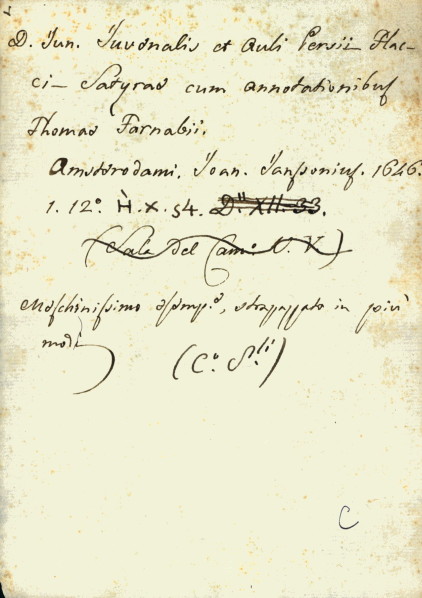 D. Jun. Juvenalis et Auli Persii Flac-
ci- Satyrae cum annotationibus
Thomae Farnabii.
Amsterodami. Joan. Janssonius. 1646.
1. 12° H. x. 54. D." XII. 33.
(Sala del Cam. U. V)
Meschinissimo esemp.°, strappazzato in più
modi
(C.° S.li)
C